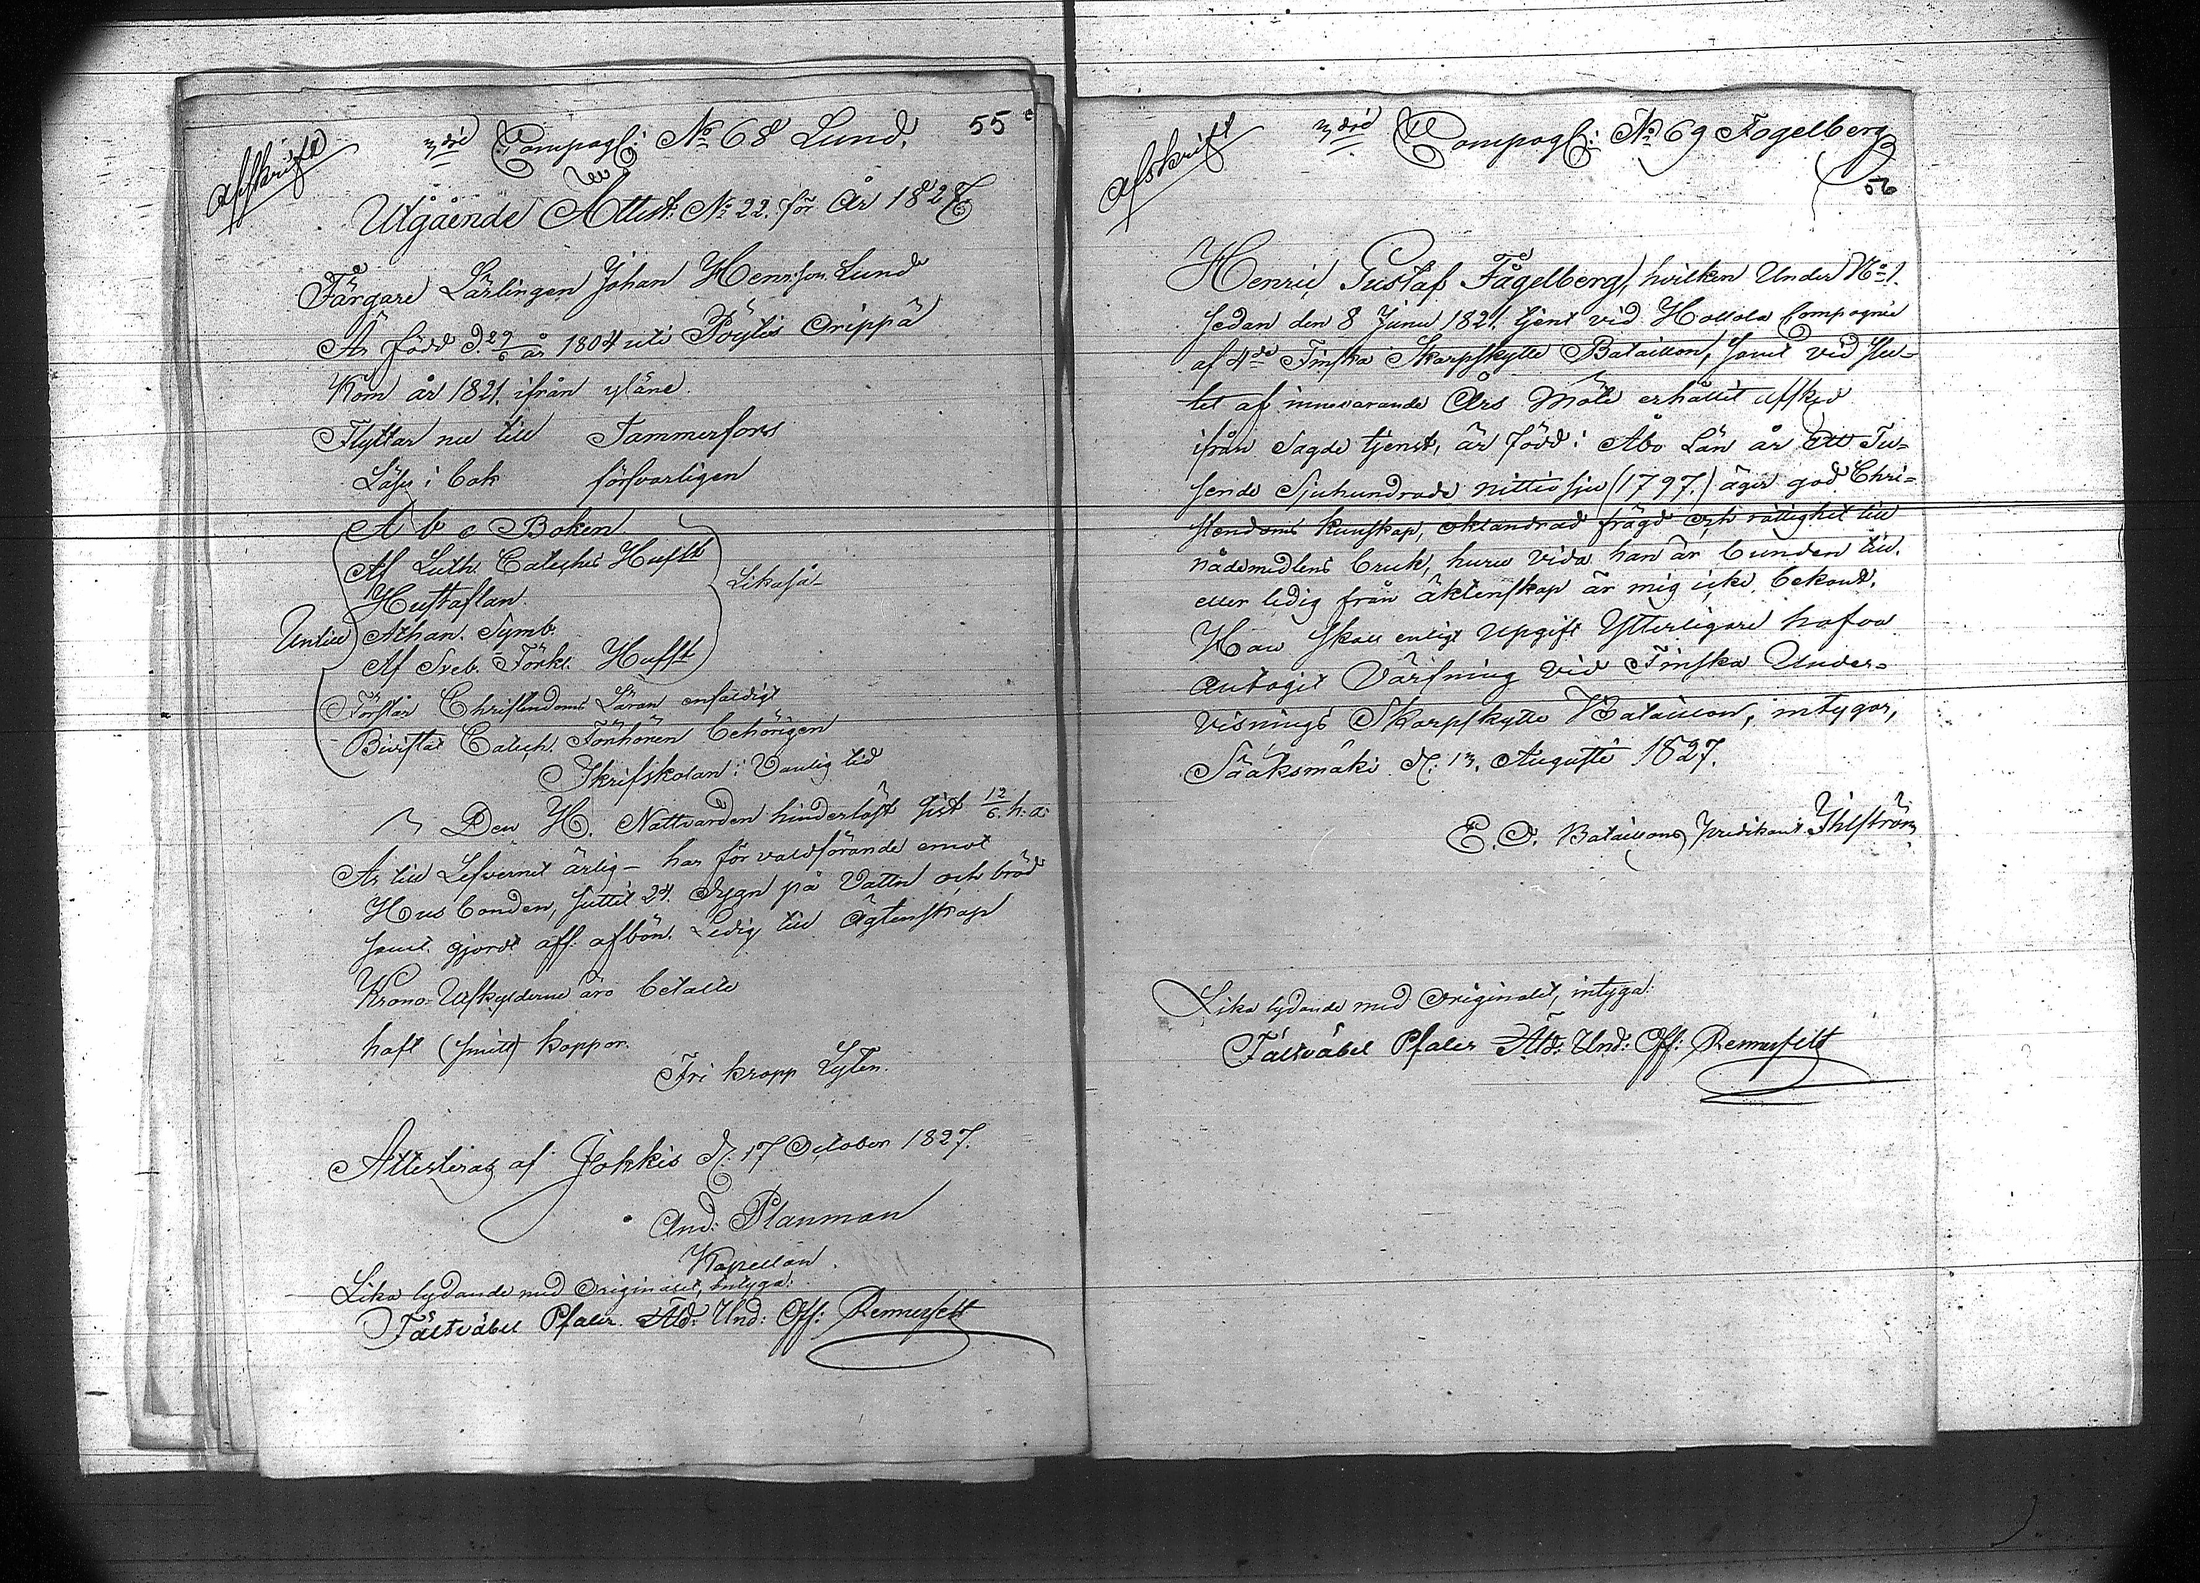 Afskrift
3die Compagn: No 68 Lund.
55
Utgående Attest. No 22. för År 1827
Färgare Lärlingen Johan Henrson Lund
Är född d. 29/6 år 1804 uti Pöytis Orippä
Kom år 1821. ifrån yläne.
Flyttar nu till Tammerfors
Läser i bok försvarligen
A b c Boken
Af Luth. Cateches Hufst
Hustaflan.
Likaså
Untill Athan. Symb.
Af Sveb. Förkl. Hufst
Förstår Christendoms Läran enfaldigt
Bivistat Catech. Förhören behörigen
Skrifskolan i Vanlig tid
Den H. Nattvarden hinderlöst sist 12/6. h. a:
Är till Lefvernet ärlig – har för valdförande emot
Husbonden, suttit 24. dygn på Vattn och bröd
samt gjordt aff. afbön. Ledig till Ägtenskap
Krono-Utskylderne äro betalte
haft (smitt) koppor.
Fri kropp Lyten.
Attesteras af Jokkis d. 17 October 1827.
And: Planman
Kapellan.
Lika lydande med Originalet, intyga:
Fältväbel Pfaler. Äld: Und: Off: Rennerfelt
Afskrift
3die Compagn: No 69 Fogelberg
56
Henric Gustaf Fågelberg, hvilken Under No 1.
sedan den 8 Junii 1821. tjent vid Hollola Compagnie
af 4de Finska Skarpskytte Bataillon, samt vid slu-
tet af innevarande Års Möte erhållit affsked
ifrån Sagde tjenst, är född i Åbo Län år Ett Tu-
sende Sjuhundrade nittiosju (1797.) äger god Chri-
stendoms kunskap, oklandrad frägd och rättighet till
nådemedlens bruk, huru vida han är bunden till.
eller ledig från äktenskap är mig icke bekant.
Han skall enligt Upgift Ytterligare hafva
antagit Värfning vid Finska Under-
visnings Skarpskytte Bataillon, intygar,
Sääksmäki d. 13. Augusti 1827.
E. O. Bataillons Predikant Ihlström
Lika lydande med Originalet, intyga:
Fältväbel Pfaler Äld: Und: Off: Rennerfelt